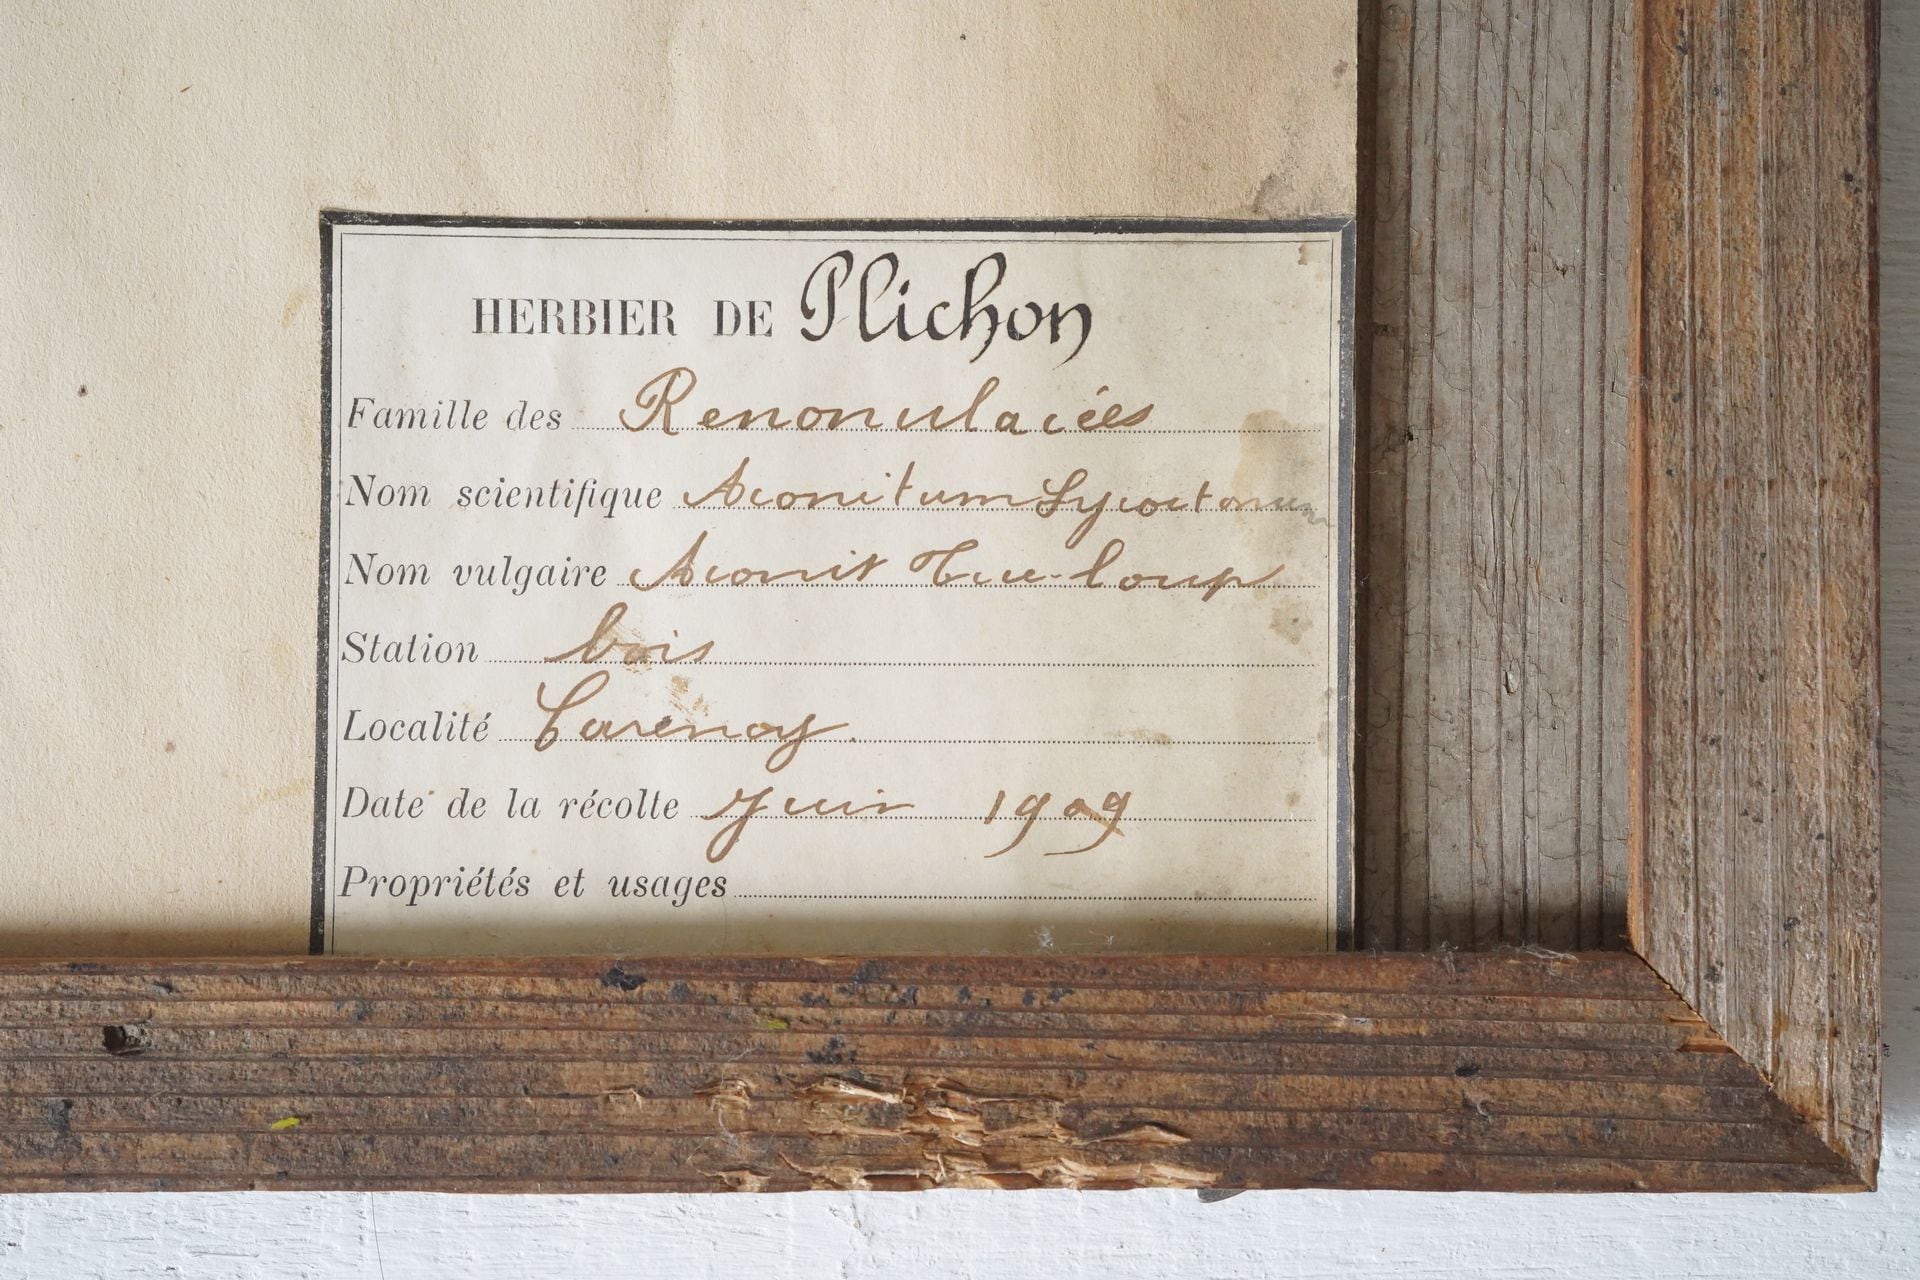 HERBIER DE Plichon
Famille des Renonulacées
Nom scientifique Aconitum Lycoctonum
Nom vulgaire Aconit Tue-loup
Station bois
Localité
Date de la récolte Juin 1909
Propriétés et usages